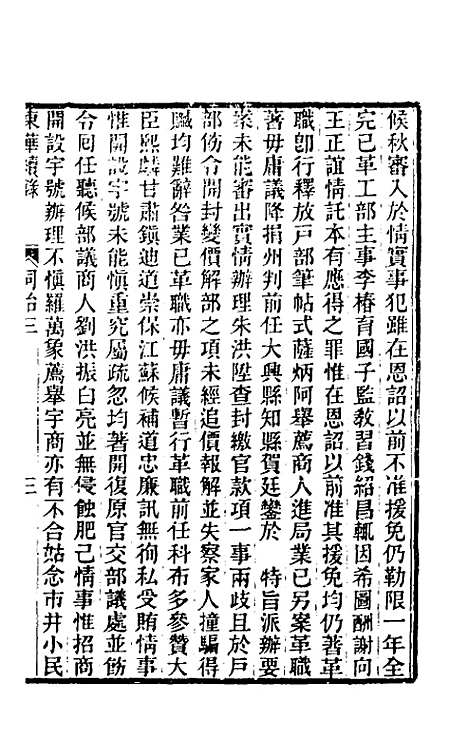 候秋審入於情實事犯雖在恩詔以前不准援免仍勒限一年全
完已革工部主事李椿育國子監教習錢紹昌輒因希圖酬謝向
王正誼情託本有應得之罪惟在恩詔以前准其援免均仍著革
職卽行釋放戶部筆帖式薩炳阿舉薦商人進局業已另案革職
著毋庸議降捐州判前任大興縣知縣賀廷鑾於　特旨派辦要
案未能審出實情辦理朱洪陞查封繳官款項一事兩歧且於戶
部飭令開封變價解部之項未經追價報解並失察家人撞騙得
贓均難辭咎業已革職亦毋庸議暫行革職前任科布多參贊大
臣熙麟甘肅鎮迪道崇保江蘇候補道忠廉訊無徇私受賄情事
惟開設宇號未能愼重究屬疏忽均著開復原官交部議處並飭
令回任聽候部議商人劉洪振白亮並無侵蝕肥己情事惟招商
開設宇號辦理不愼羅萬象薦舉宇商亦有不合姑念市井小民
東華續錄
同治三
三